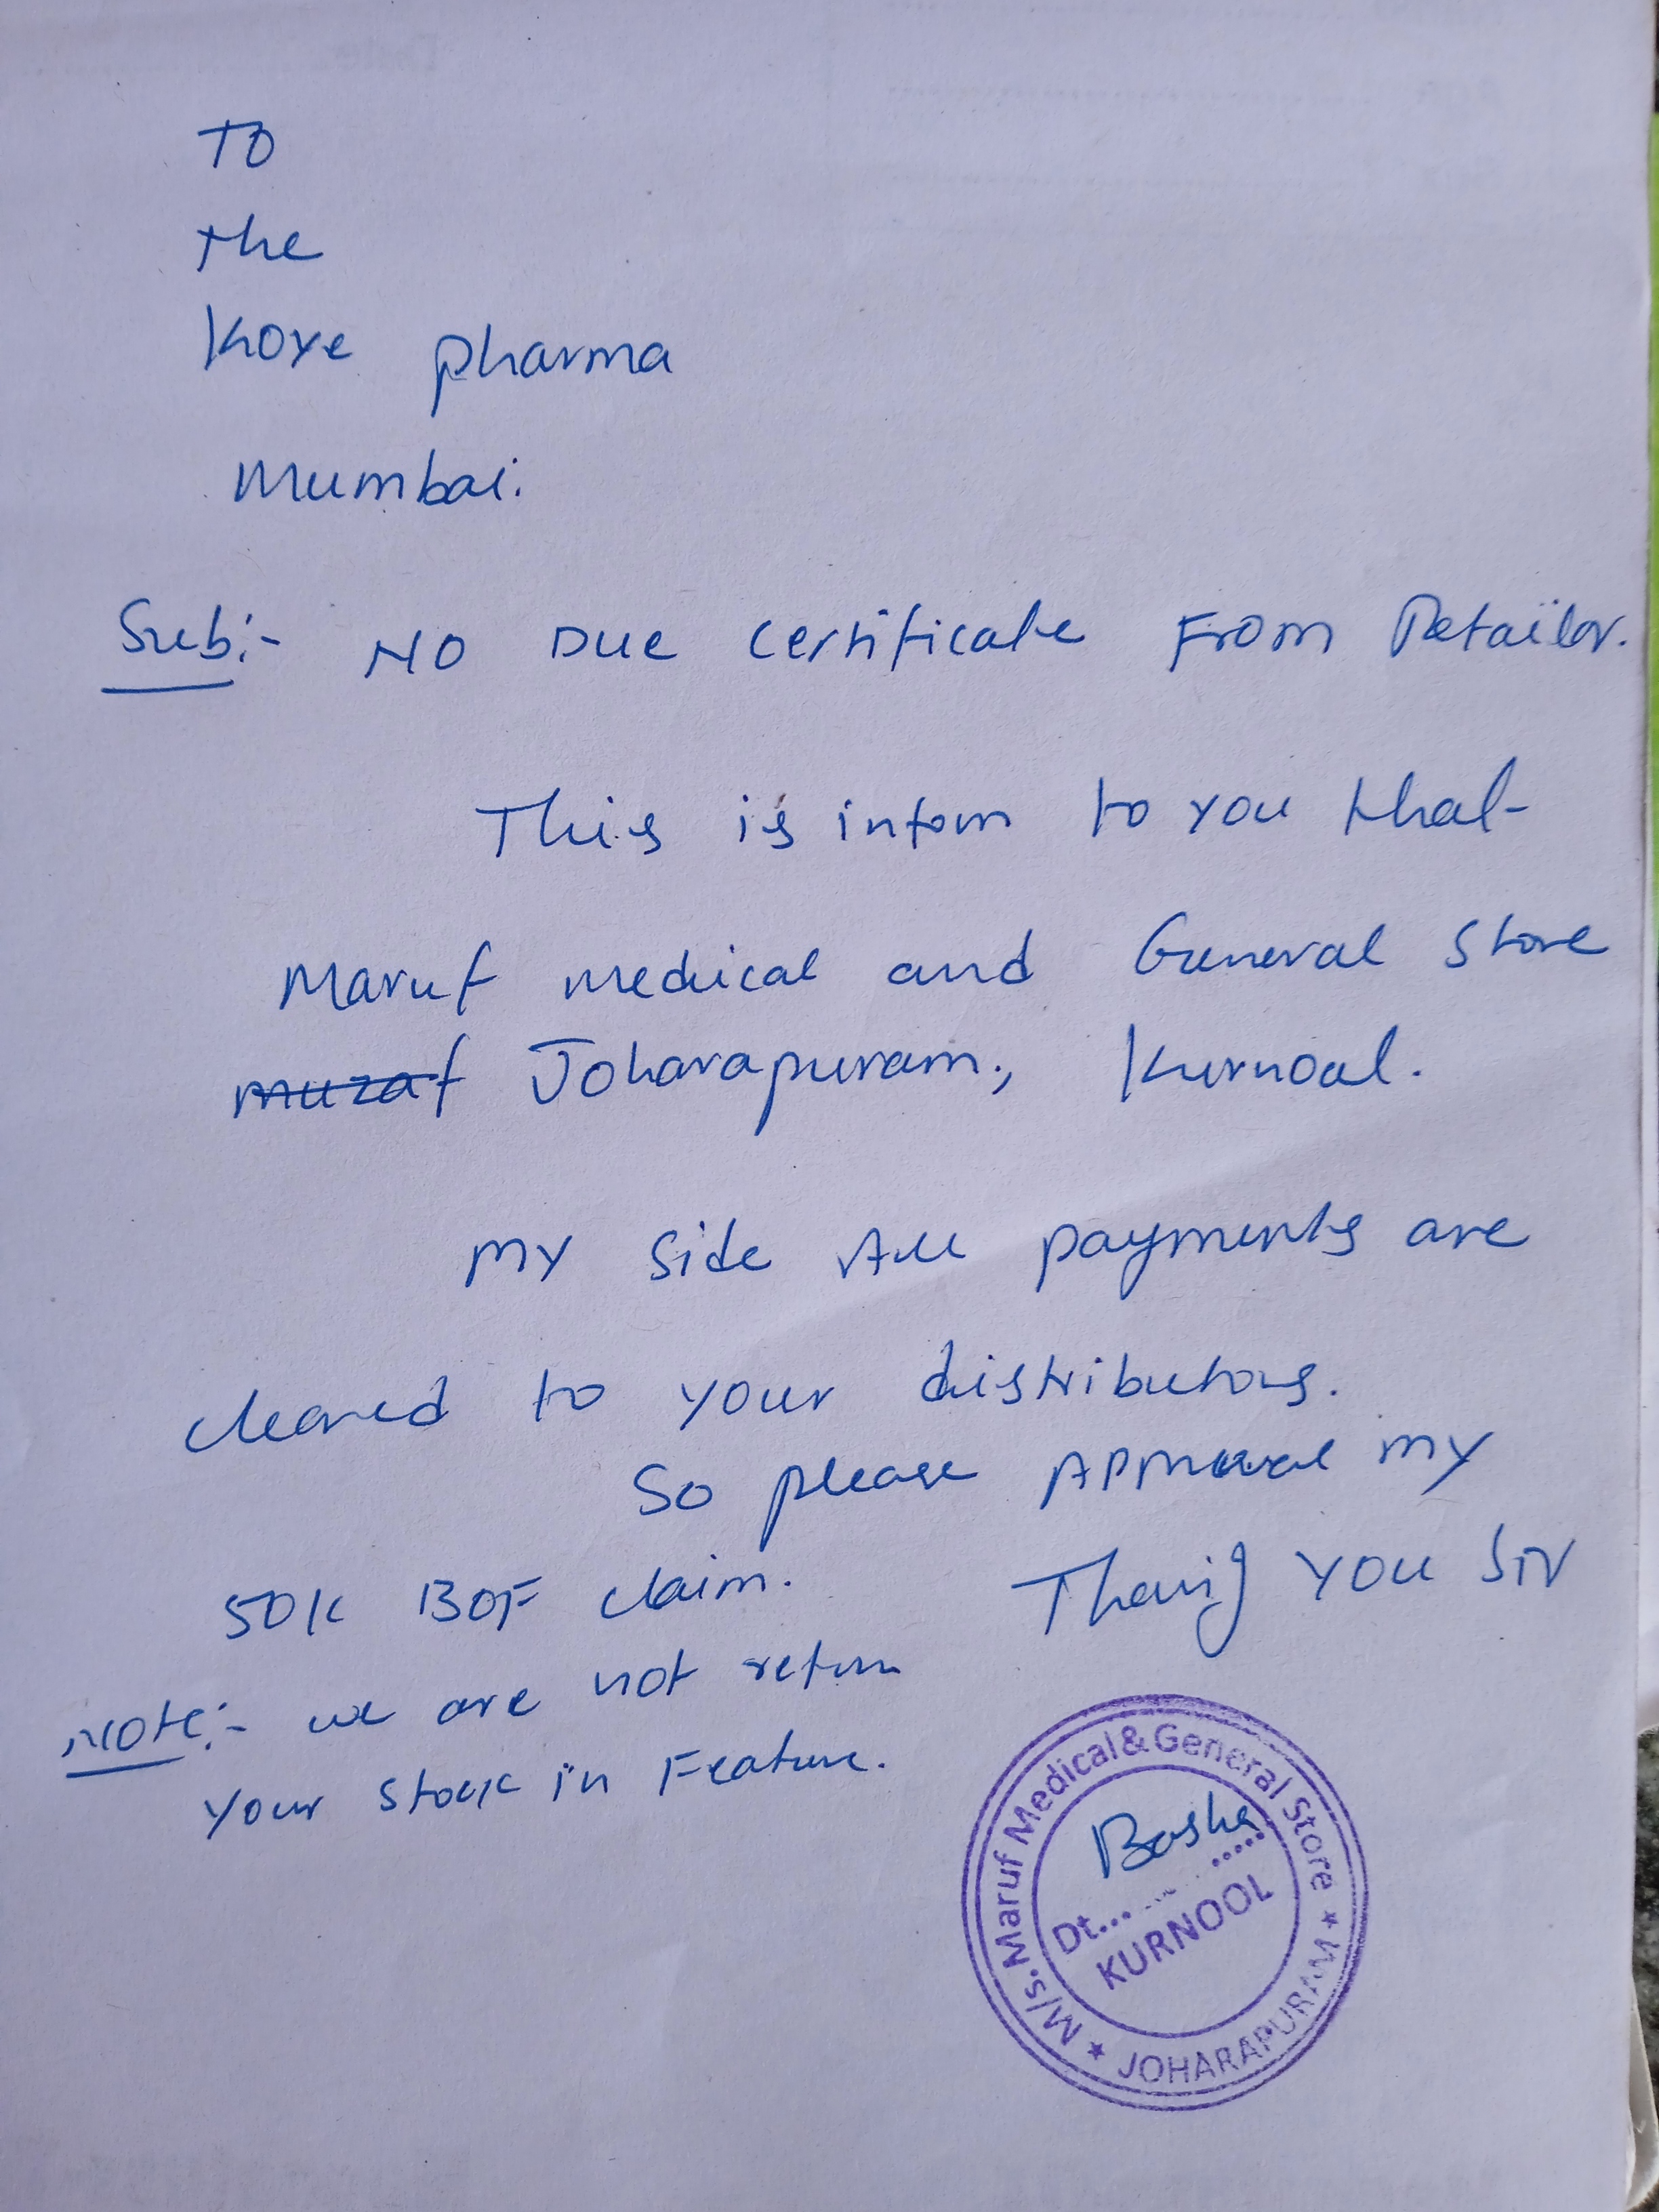 TO
the
Koye pharma
Mumbai.
Sub:- NO DUE certificate From Retailor.
This is infom to you that
Maruf medical and General Store
muzaf Joharapuram, Kurnool.
MY Side All payments are
cleared to your distributors.
So please Approval MY
50K BOF claim. Thanq you Sir
Note:- we are not return
your stock in Feature.
M/s. Maruf Medical & General Store
Basha
Dt...
KURNOOL
★ JOHARAPURAM ★